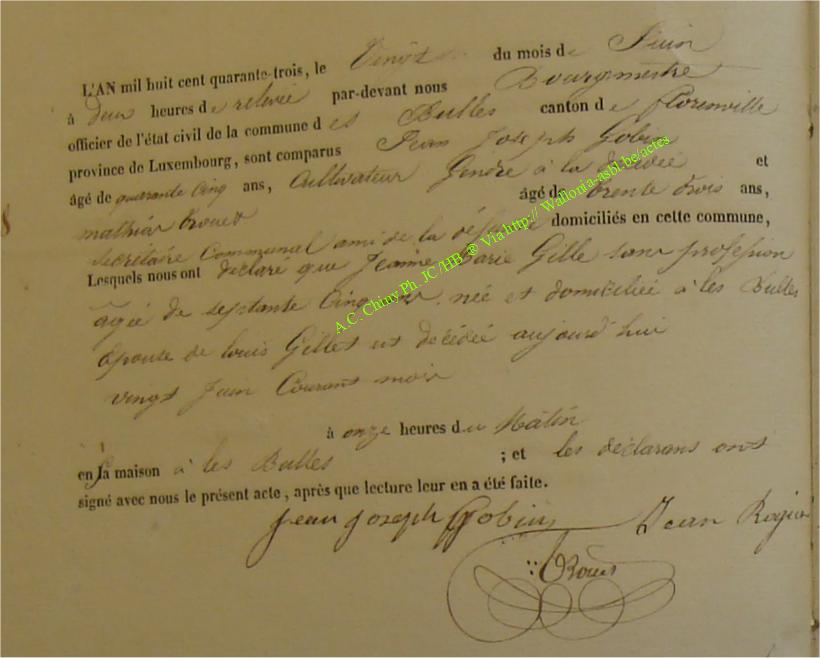 L'AN mil huit cent quarante-trois, le Vingt du mois de Juin
à deux heures de relevée par-devant nous Bourgmestre
officier de l'état civil de la commune d es Bulles canton de florenville
province de Luxembourg, sont comparus Jean Joseph Gobin
âgé de quarante Cinq ans, Cultivateur Gendre à la décédée et
mathias Brouet âgé de trente trois ans,
secrétaire Communal ami de la défunte domiciliés en cette commune,
Lesquels nous ont declaré que Jeanne Marie Gille sans profession
agée de septante Cinq ans, née et domiciliée à les Bulles
épouse de louis Gillet est decédée aujourd'hui
vingt Juin Courant mois
à onze heures du Matin
en sa maison à les Bulles ; et les déclarans ont
signé avec nous le présent acte, après que lecture leur en a été faite.
Jean Joseph Gobin Jean Rogier
A.C. Chiny Ph. JC /HB ® Via http:// Wallonia-asbl.be/actes